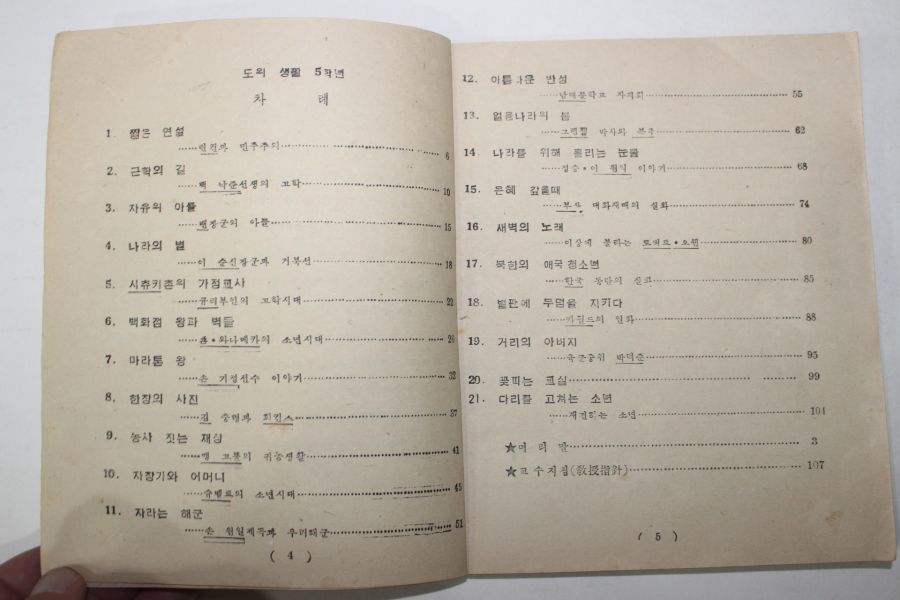 도의 생활 5학년
차 례
1. 짧은 연설
……링컨과 민주주의……6
2. 근학의 길
……백 낙준선생의 고학……10
3. 자유의 아들
……밴장군의 아들……15
4. 나라의 별
……이 순신장군과 거북선……18
5. 시츄키촌의 가정교사
……큐리부인의 고학시대……22
6. 백화점 왕과 벽돌
……죤·와나메카의 소년시대……26
7. 마라톤 왕
……손 기정선수 이야기……32
8. 한장의 사진
……김 충명과 희킨스……37
9. 농사 짓는 재상
……맹 고불의 귀농생활……41
10. 자장가와 어머니
……슈벨트의 소년시대……45
11. 자라는 해군
……손 원일제독과 우리해군……51
( 4 )
12. 아름다운 반성
……남대문학교 자치회……55
13. 얼음나라의 봄
……그렌펠 박사와 복음……62
14. 나라를 위해 흘리는 눈물
……정승·이 원익 이야기……68
15. 은혜 갚을때
……부산 대화재때의 실화……74
16. 새벽의 노래
……이상에 불타는 로버트·오웬……80
17. 북한의 애국청소년
……한국 동란의 실화……85
18. 벌판에 무덤을 지키다
……카월드의 일화……88
19. 거리의 아버지
……육군중위 박덕준……95
20. 꽃피는 교실……99
21. 다리를 고쳐는 소년
……재건하는 소년……104
★머리 말……3
★교수지침(敎授指針)……107
( 5 )